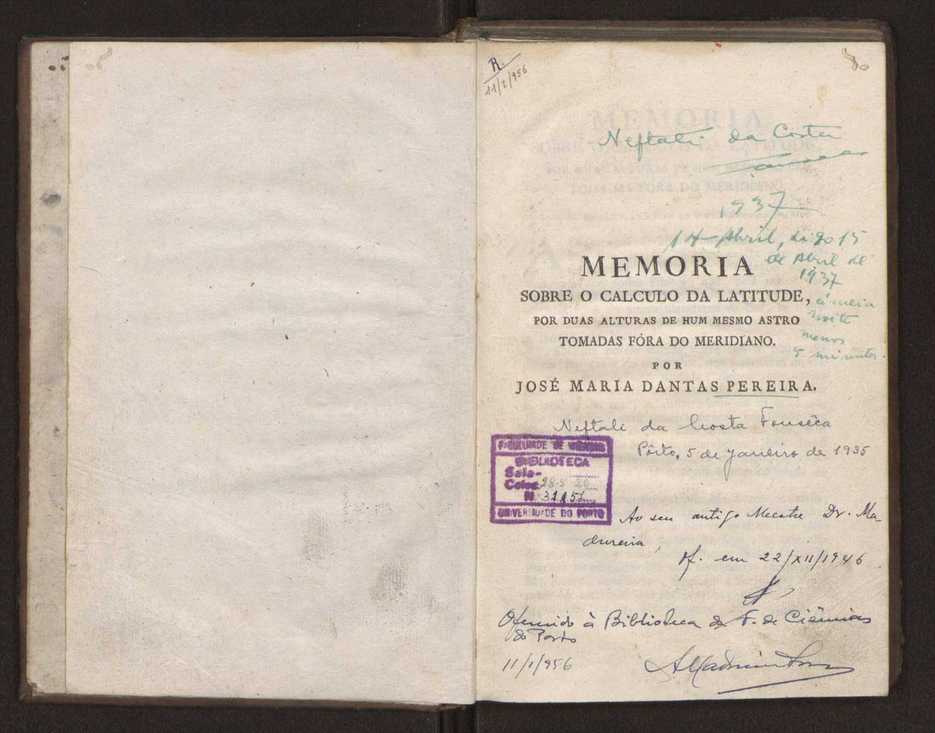 R.
11/2/956
Neftali da Costa
Fonseca
1937
14 Abril, digo 15
de Abril de
1937
MEMORIA
SOBRE O CALCULO DA LATITUDE,
á meia
POR DUAS ALTURAS DE HUM MESMO ASTRO
noite
TOMADAS FÓRA DO MERIDIANO.
menos
5 minutos.
POR
JOSÉ MARIA DANTAS PEREIRA.
Neftali da Costa Fonsêca
Pôrto, 5 de Janeiro de 1935
FACULDADE DE CIENCIAS
BIBLIOTECA
Sala-
Coloc
N.
UNIVERSIDADE DO PORTO
Ao seu antigo Mestre Dr. Ma
dureira,
of. em 22/XII/1946
Oferecido à Biblioteca da F. de Ciências
do Porto
11/2/956